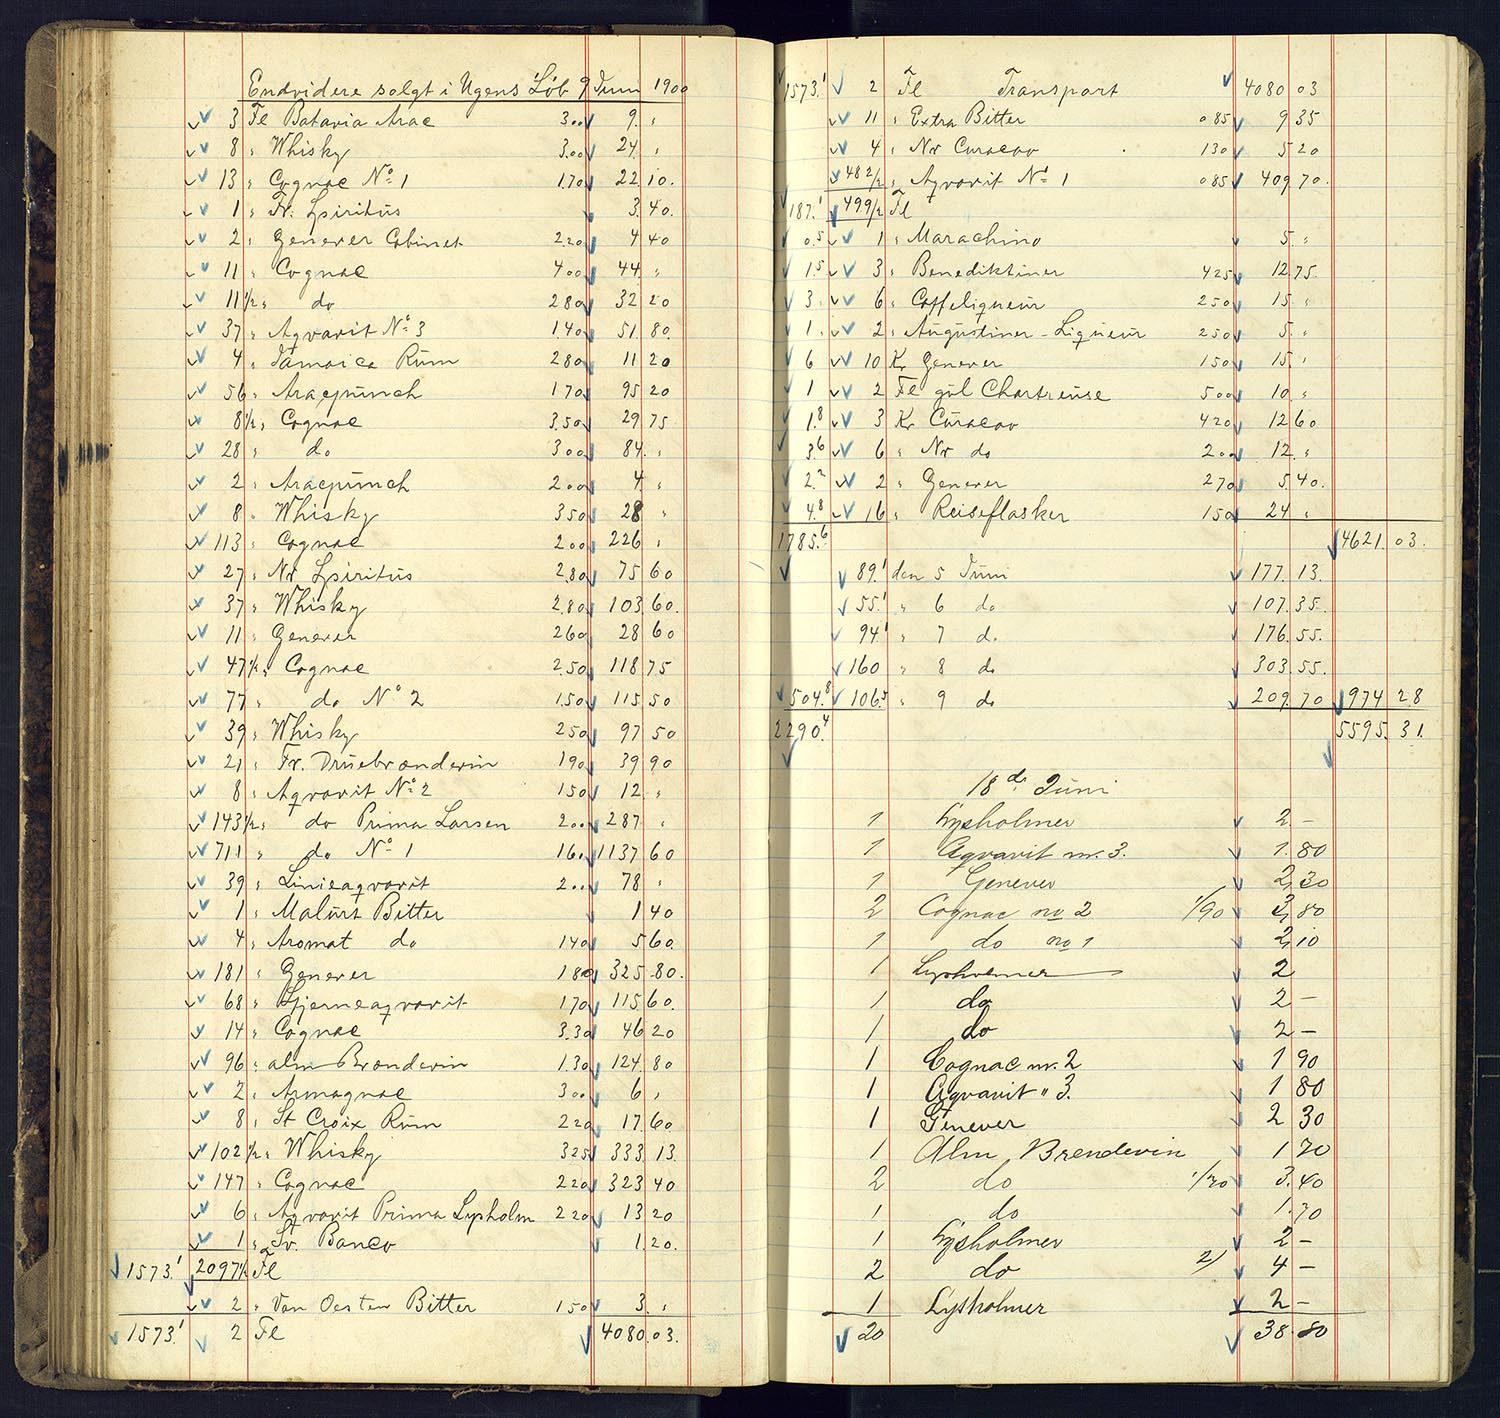 Endvidere solgt i Ugens Løb 9 Juni 1900
3 Fl Batavia Arac 3.00 9. "
8 " Whisky 3.00 24. "
13 " Cognac No 1 1.70 22 10.
1 " Fr. Spiritus 3. 40.
2 " Genever Cabinet 2.20 4 40
11 " Cognac 4.00 44. "
11 1/2 " do 2.80 32 20
37 " Aqvavit No 3 1.40 51. 80.
4 " Jamaica Rum 2.80 11 20
56 " Aracpunch 1.70 95 20
8 1/2 " Cognac 3.50 29 75
28 " do 3.00 84. "
2 " Aracpunch 2.00 4 "
8 " Whisky 3.50 28 "
113 " Cognac 2.00 226 "
27 " Nr Spiritus 2.80 75 60
37 " Whisky 2.80 103 60.
11 " Genever 2.60 28 60
47 1/2 " Cognac 2.50 118 75
77 " do No 2 1.50 115 50
39 " Whisky 2.50 97 50
21 " Fr. Druebrænderin 1.90 39 90
8 " Aqvavit No 2 1.50 12 "
143 1/2 " do Prima Larsen 2.00 287 "
711 " do No 1 1.60 1137 60
39 " Linieaqvavit 2.00 78 "
1 " Malurt Bitter 1 40
4 " Aromat do 1.40 5 60.
181 " Genever 1.80 325 80.
68 " Stjerneaqvavit 1.70 115 60.
14 " Cognac 3.30 46 20
96 " alm Brændevin 1.30 124 80
2 " Armagnac 3.00 6 "
8 " St Croix Rum 2.20 17 60
102 1/2 " Whisky 3.25 333 13
147 " Cognac 2.20 323 40
6 " Aqvavit Prima Lysholm 2.20 13 20
1 " Sv. Banco 1. 20.
1573.1 2097 1/2 Fl
2 " Van Oosten Bitter 1.50 3. "
1573.1 2 Fl 4080. 03.
1573.1 2 Fl Transport 4080 03
11 " Extra Bitter 0 85 9 35
4 " Nr Curacao 1 30 5 20
482 1/2 " Aqvavit No 1 0 85 409 70.
187.1 499 1/2 Fl
0.5 1 " Marachino 5. "
1.5 3 " Benediktiner 4 25 12 75
3. 6 " Caffeliqueur 2 50 15 "
1. 2 " Augustiner-Liqueur 2 50 5. "
6 10 Kr Genever 1 50 15. "
1 2 Fl gul Chartreuse 5 00 10 "
1.8 3 Kr Curacao 4 20 12 60
3.6 6 " Nr do 2.00 12. "
2.2 2 " Genever 2 70 5 40.
4.8 16 " Reiseflasker 1 50 24 "
1785.6 4621. 03.
89.1 den 5 Juni 177. 13.
55.1 " 6 do 107. 35.
94.1 " 7 do 176. 55.
160 " 8 do 303. 55.
504.8 106.5 " 9 do 209. 70 974 28
2290.4 5595. 31.
18 de Juni
1 Lysholmer 2. -
1 Aqvavit nr. 3. 1. 80
1 Genever 2. 30
2 Cognac no 2 1/90 3. 80
1 do no 1 2. 10
1 Lysholmer 2
1 do 2 -
1 do 2 -
1 Cognac nr. 2 1 90
1 Aqvavit " 3. 1 80
1 Genever 2 30
1 Alm Brendevin 1 70
2 do 1/70 3. 40
1 do 1. 70
1 Lysholmer 2 -
2 do 2/ 4 -
1 Lysholmer 2 -
20 38. 80